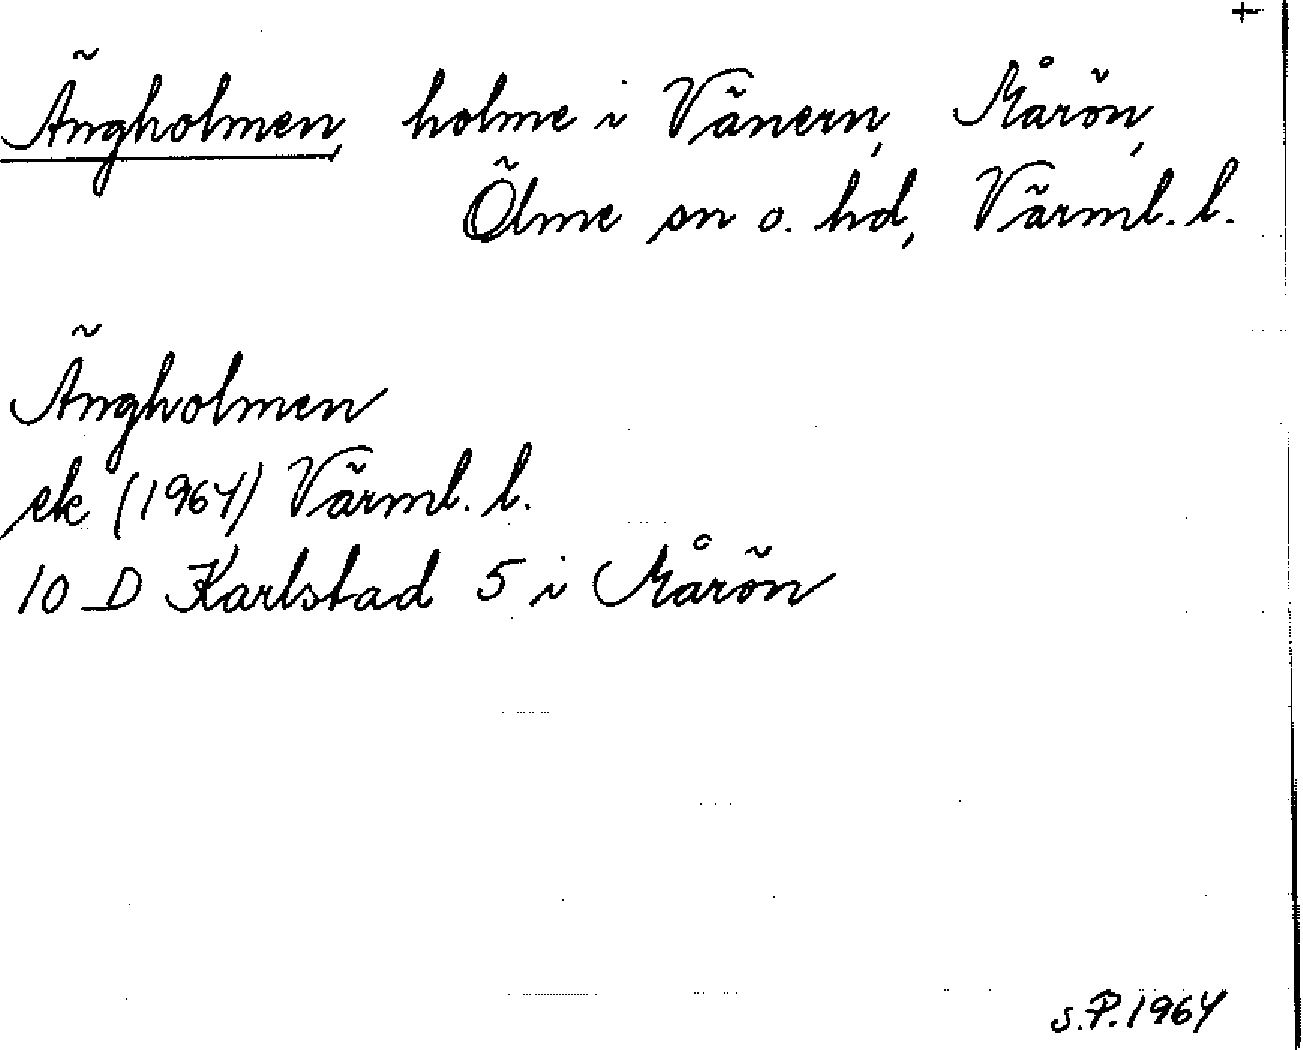 +
Ängholmen, holme i Vänern, Mårön,
Ölme sn o. hd, Värml. l.
Ängholmen
ek (1964) Värml. l.
10 D Karlstad 5 i Mårön
S.P. 1964